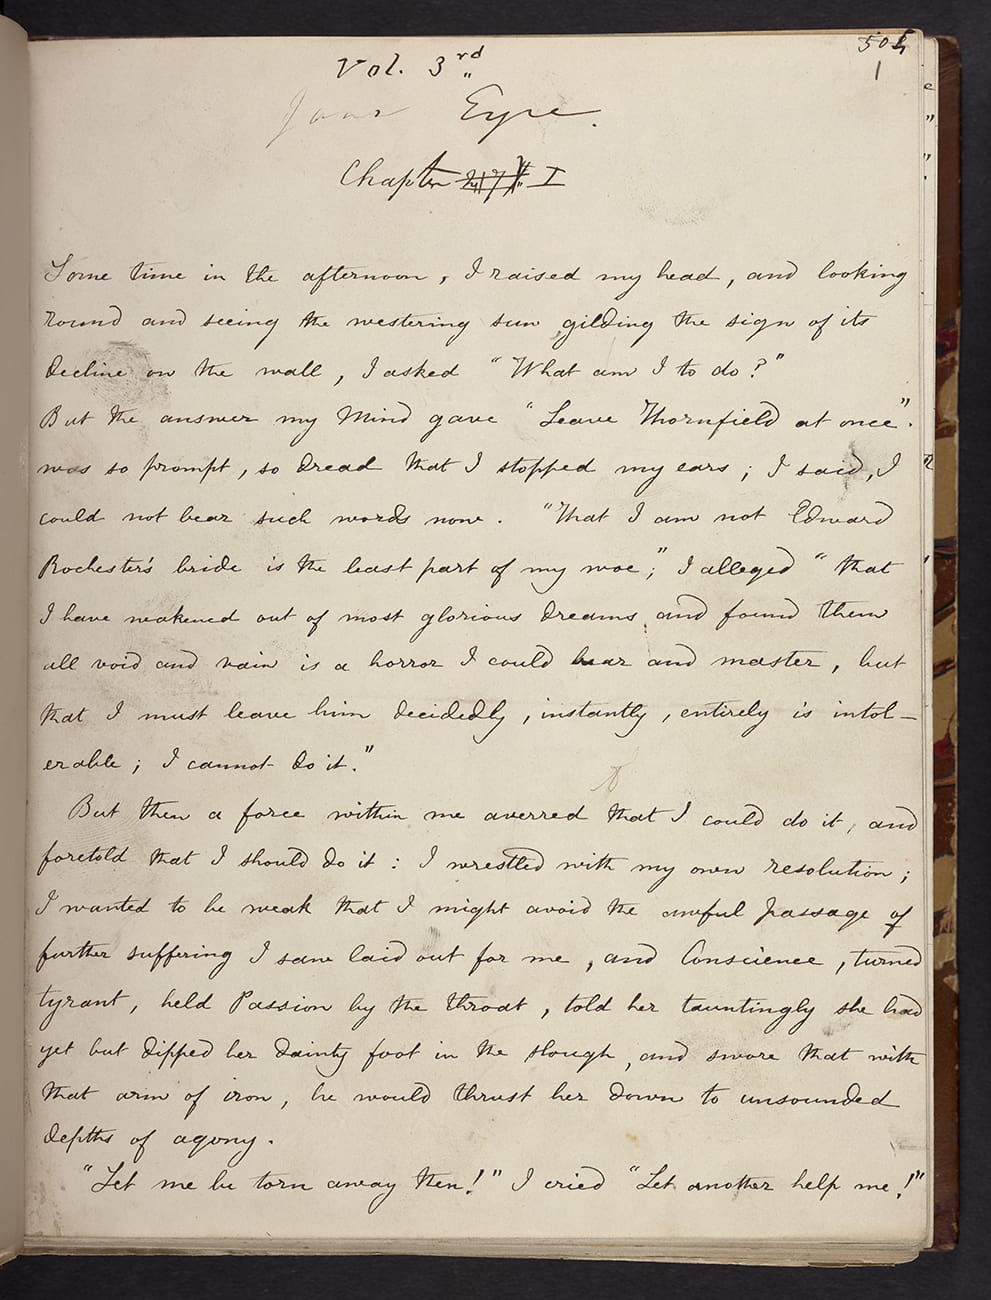 Vol. 3rd
1
Jane Eyre.
Chapter I
Some time in the afternoon, I raised my head, and looking
round and seeing the westering sun gilding the sign of its
decline on the wall, I asked "What am I to do?"
But the answer my Mind gave "Leave Thornfield at once".
was so prompt, so dread that I stopped my ears; I said, I
could not bear such words now. "That I am not Edward
Rochester's bride is the least part of my woe"; I alleged "that
I have weakened out of most glorious dreams and found them
all void and vain is a horror I could bear and master, but
that I must leave him decidedly, instantly, entirely is intol-
erable; I cannot do it."
But then a force within me averred that I could do it, and
foretold that I should do it: I wrestled with my own resolution;
I wanted to be weak that I might avoid the awful passage of
further suffering I saw laid out for me, and Conscience, turned
tyrant, held Passion by the throat, told her tauntingly she had
yet but dipped her dainty foot in the slough, and swore that with
that arm of iron, he would thrust her down to unsounded
depths of agony.
"Let me be torn away then!" I cried "Let another help me!"